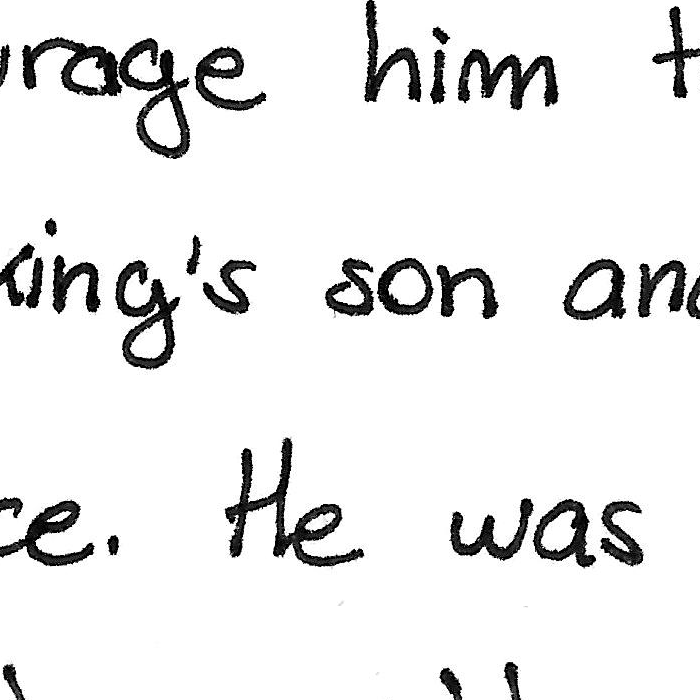 urage him t
king's son and
ce. He was